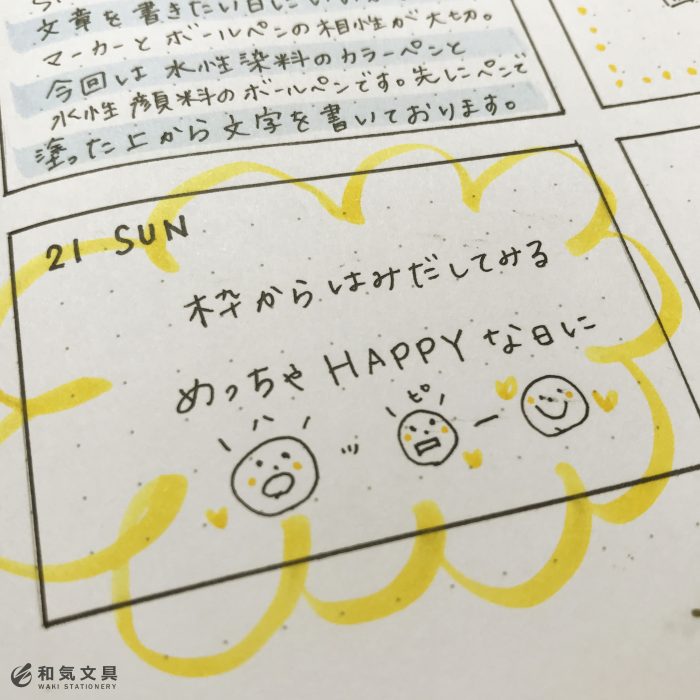 文章を書きたい日に
マーカーとボールペンの相性が大切。
今回は水性染料のカラーペンと
水性顔料のボールペンです。先にペンで
塗った上から文字を書いております。
21 SUN
枠からはみだしてみる
めっちゃHAPPYな日に
ハ ッ ピ ー
和気文具
WAKI STATIONERY